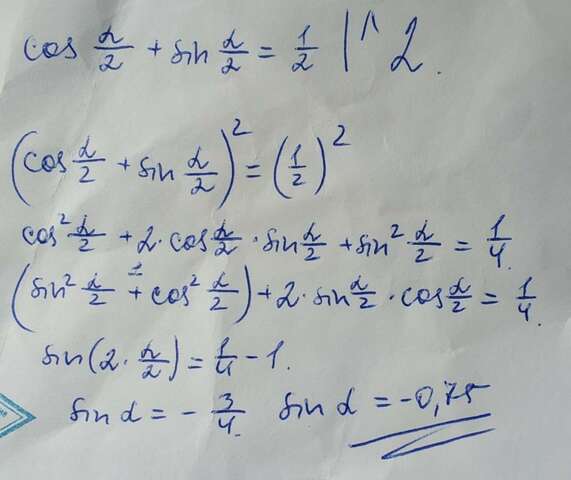 cos α/2 + sin α/2 = 1/2 |^2.
(cos α/2 + sin α/2)^2 = (1/2)^2
cos^2 α/2 + 2·cos α/2 · sin α/2 + sin^2 α/2 = 1/4.
(sin^2 α/2 + cos^2 α/2) + 2·sin α/2 · cos α/2 = 1/4.
sin(2·α/2) = 1/4 - 1.
sin α = - 3/4. sin α = -0,75